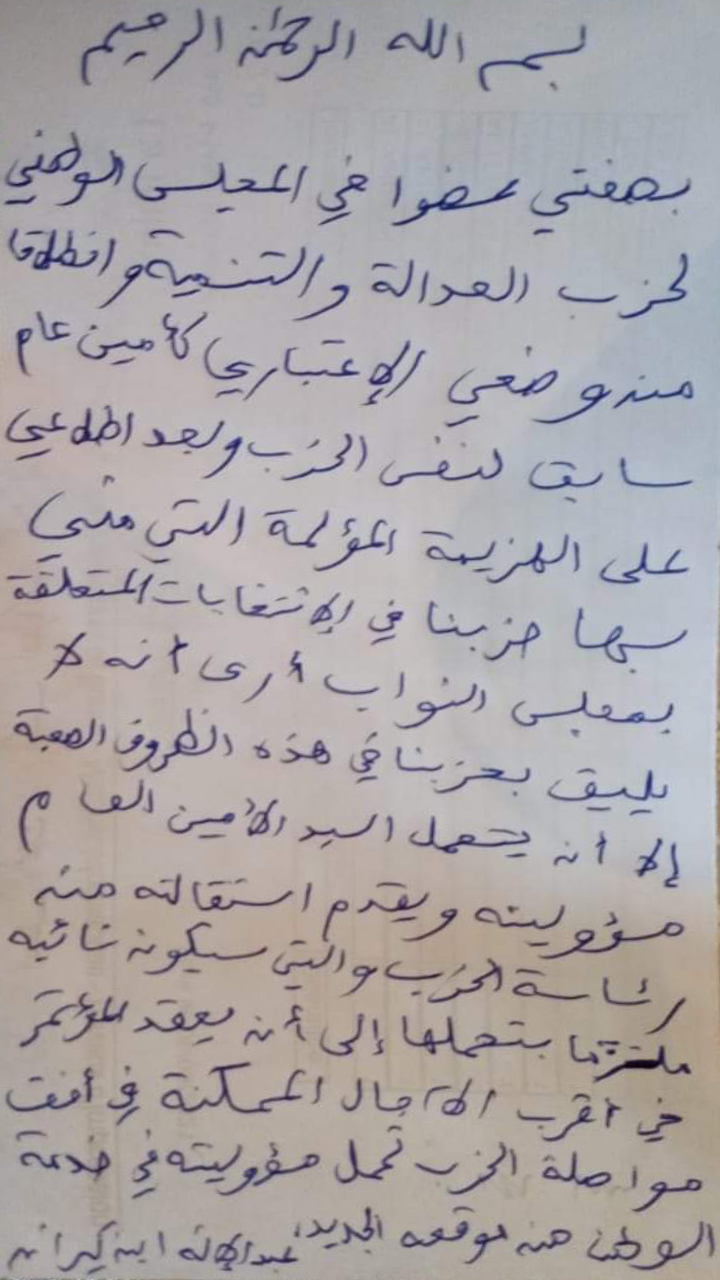 بسم الله الرحمن الرحيم
بصفتي عضوا في المجلس الوطني
لحزب العدالة والتنمية وانطلاقا
من وضعي الإعتباري كأمين عام
سابق لنفس الحزب وبعد اطلاعي
على الهزيمة المؤلمة التي مني
بها حزبنا في الإنتخابات المتعلقة
بمجلس النواب أرى أنه لا
يليق بحزبنا في هذه الظروف الصعبة
إلا أن يتحمل السيد الأمين العام
مسؤوليته ويقدم استقالته من
رئاسة الحزب والتي سيكون نائبه
ملتزما بتحملها إلى أن يعقد المؤتمر
في أقرب الآجال الممكنة في أفق
مواصلة الحزب تحمل مسؤوليته في خدمة
الوطن من موقعه الجديد، عبد الإلاه ابن كيران